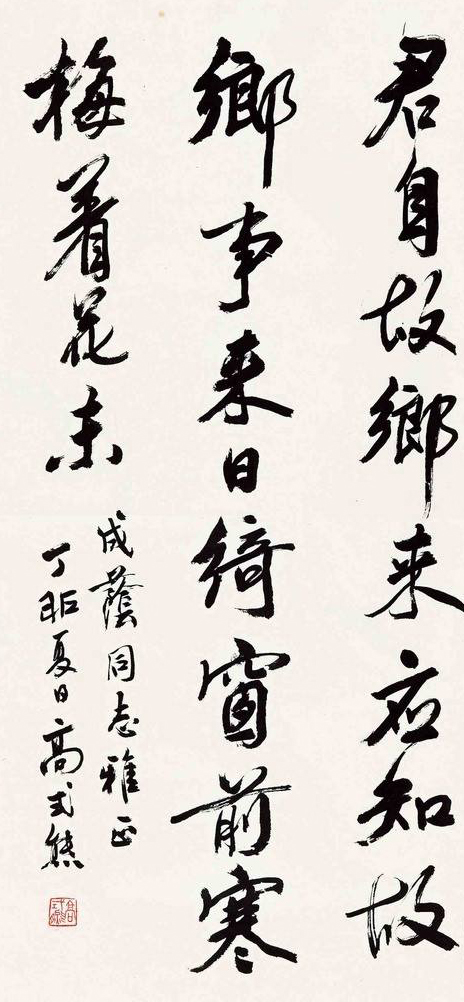 君自故鄉来應知故
鄉事来日綺窗前寒
梅着花未
成蔭同志雅正
丁卯夏日高式熊